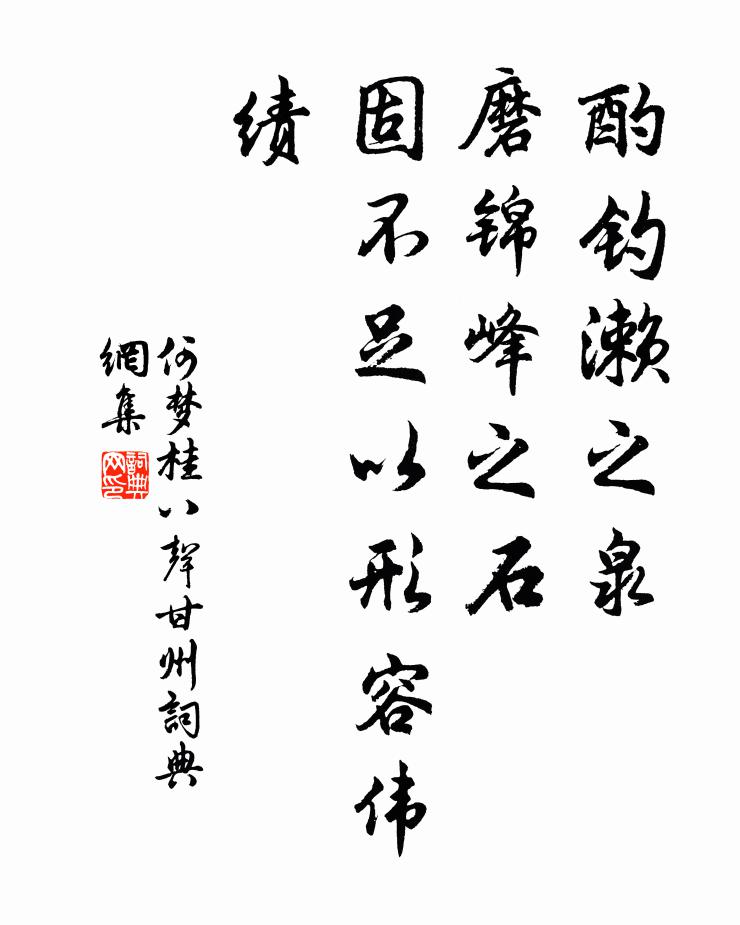 酌钓濑之泉
磨锦峰之石
固不足以形容伟
绩
何梦桂八聲甘州詞典
網集
詞典
网印